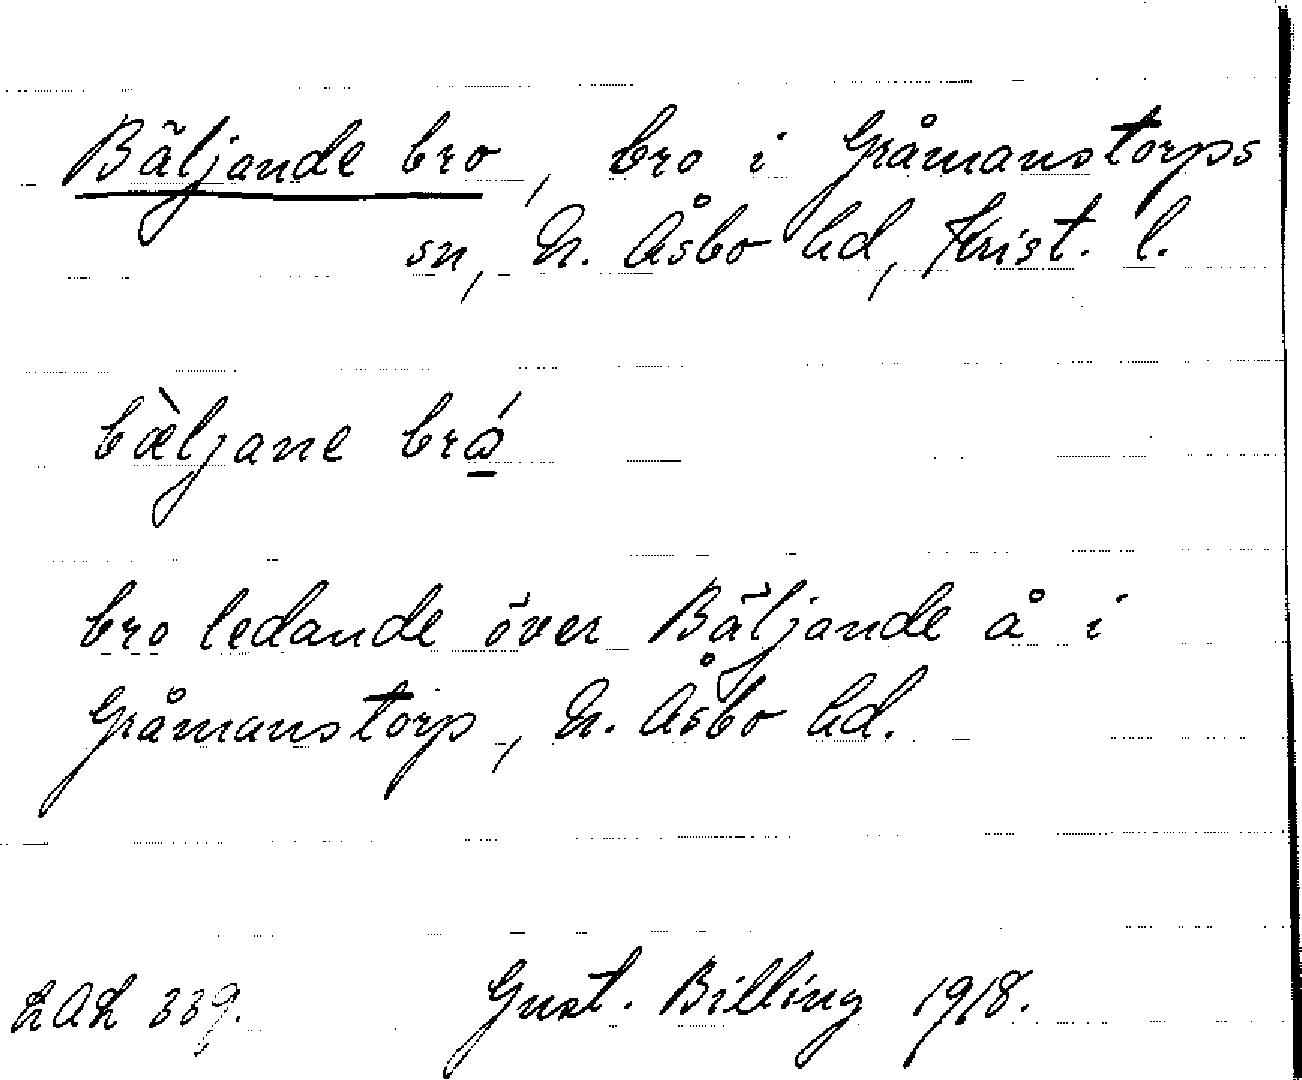 Bäljande bro, bro i Gråmanstorps
sn, N. Åsbo hd, Krist. l.
bæ̀ljane brǻ
bro ledande över Bäljande å i
Gråmanstorp, N. Åsbo hd.
LAL 339. Gust. Billing 1918.